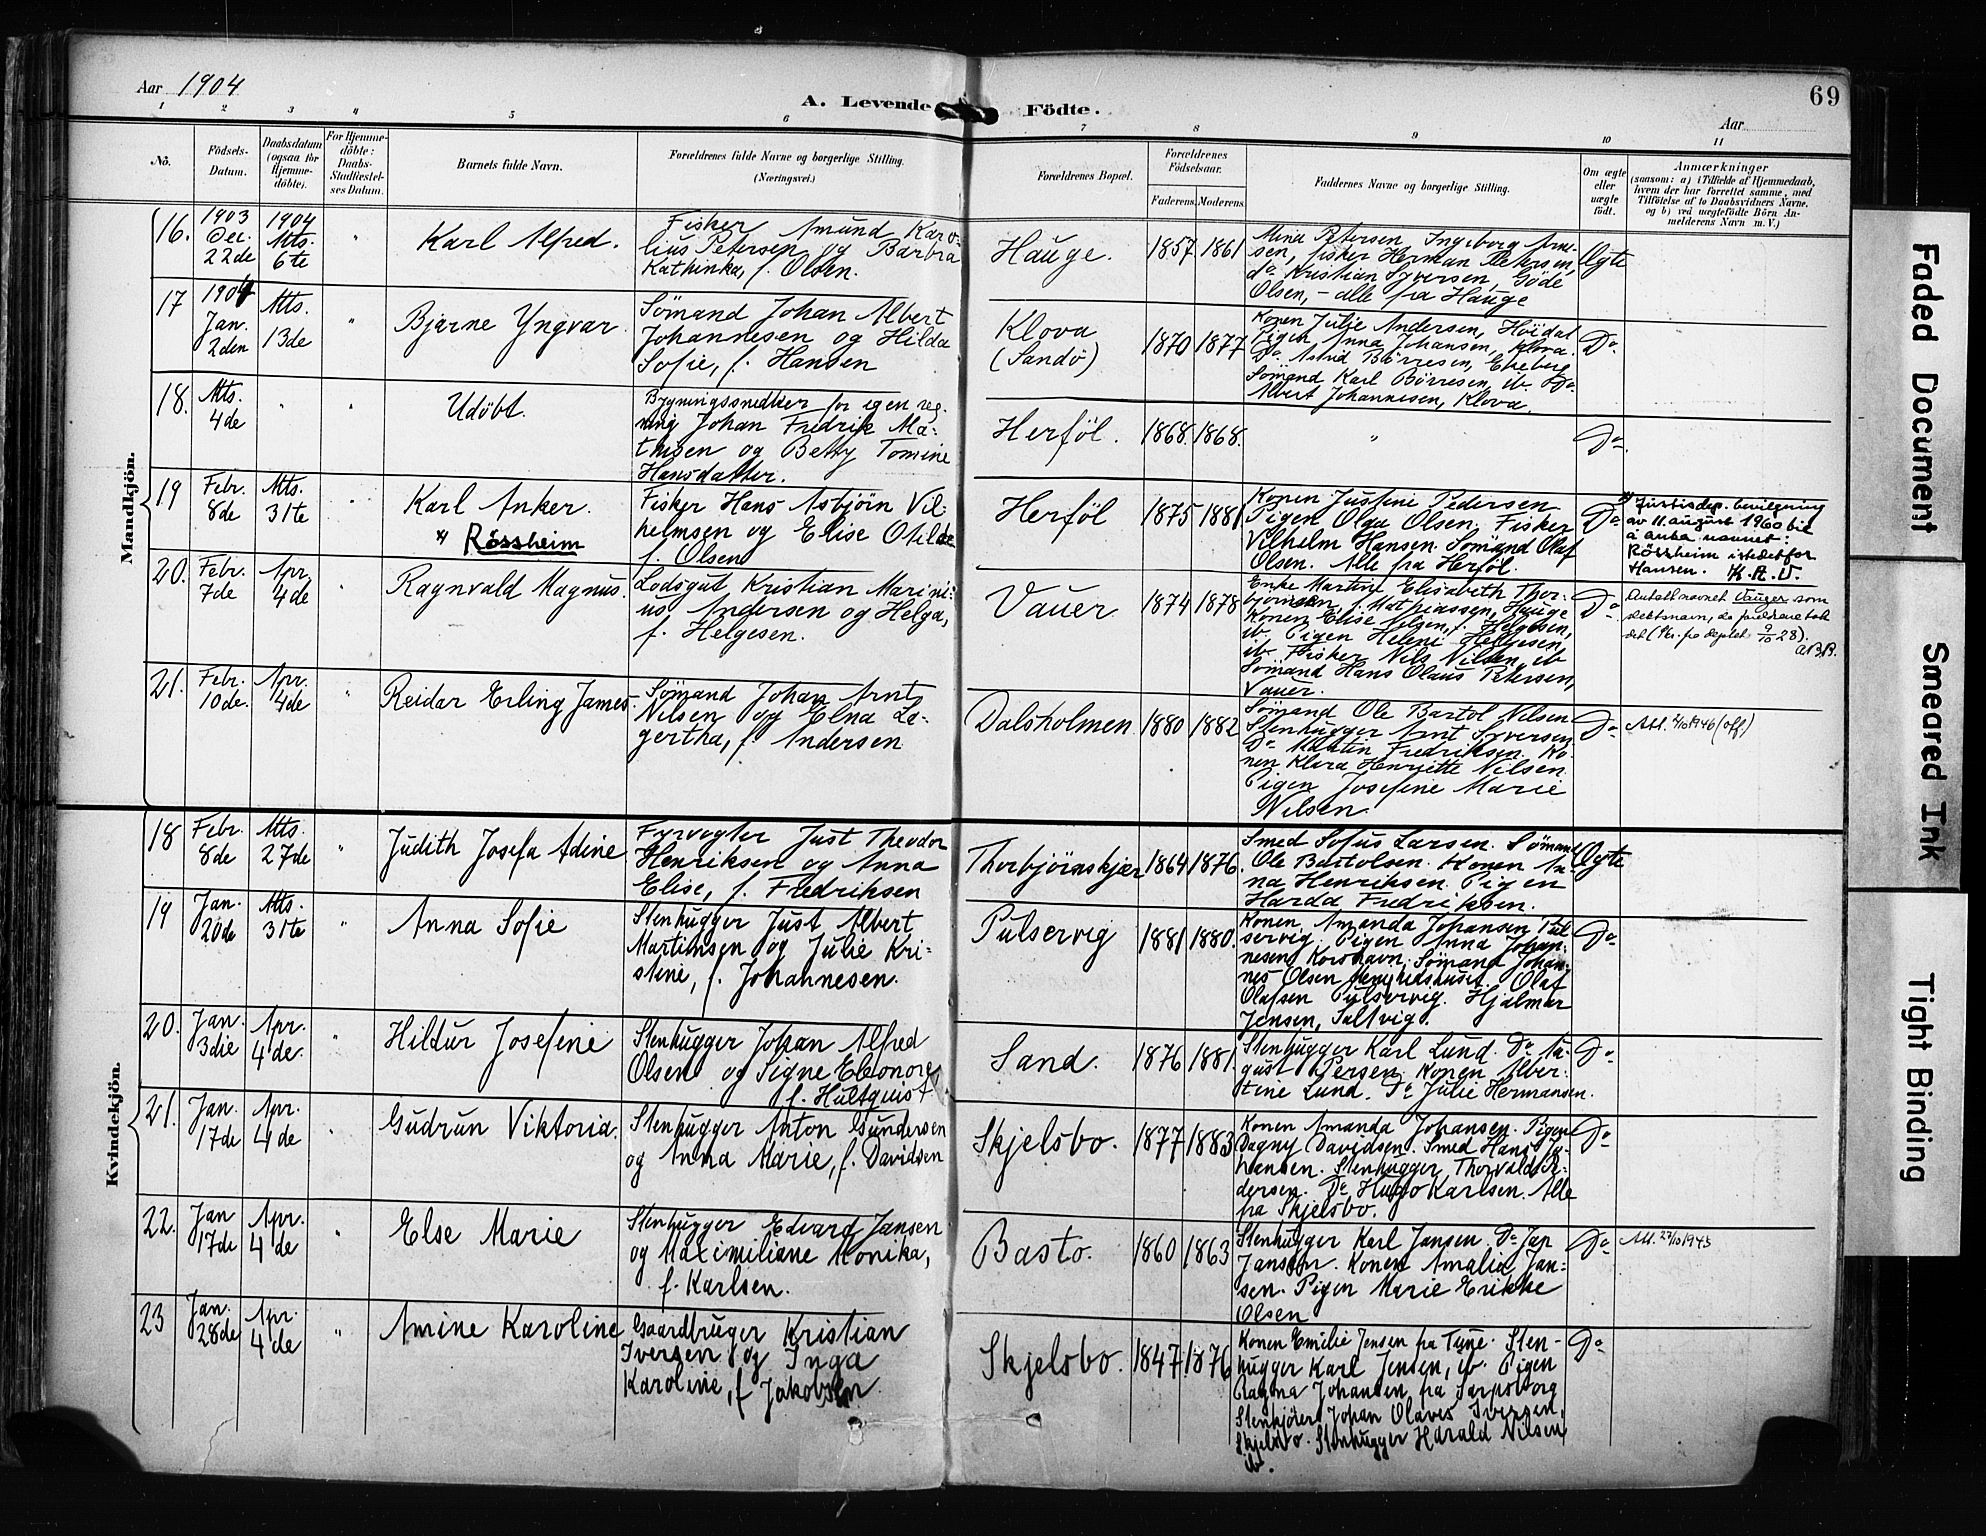 Aar 1904
A. Levende Födte.
69
Aar
1 2 3 4 5 6 7 8 9 10 11
No.
Födsels-
Datum.
Daabsdatum
(ogsaa for
Hjemme-
döbte).
For Hjemme-
döbte:
Daabs-
Stadfæstel-
ses Datum.
Barnets fulde Navn.
Forældrenes fulde Navne og borgerlige Stilling.
(Næringsvei.)
Forældrenes Bopæl.
Forældrenes
Födselsaar.
Faderens.
Moderens.
Faddernes Navne og borgerlige Stilling.
Om ægte
eller
uægte
født.
Anmærkninger
(saasom: a) i Tilfælde af Hjemmedaab,
hvem der har forrettet samme, med
Tilföielse af to Daabsvidners Navne,
og b) ved uægtefödte Börn An-
melderens Navn m. V.)
Mandkjön.
16.
1903
Dec.
22de
1904
Mts.
6te
"
Karl Alfred.
Fisker Amund Karo-
lius Petersen og Barbra
Kathinka, f. Olsen.
Hauge.
1857.
1861
Mina Petersen, Ingeborg Arne-
sen, fisker Herman Petersen,
do Kristian Syversen, Göde
Olsen, - alle fra Hauge
Ægte
17
1904
Jan.
2den
Mts.
13de
"
Bjarne Yngvar.
Sömand Johan Albert
Johannesen og Hilda
Sofie, f. Hansen
Klova
(Sandö)
1870
1877
Konen Julje Andersen, Höidal
Pigen Anna Johansen, Klova.
Do Astrid Börresen, Ekeberg
Sömand Karl Börresen, ib. Do
Albert Johannesen, Klova.
Do
18.
Mts.
4de
"
"
Udöbt.
Bygningssnedker for egen reg-
ning Johan Fredrik Ma-
thisen og Betty Tomine
Hansdatter.
Herföl.
1868.
1868.
"
Do
19
Febr.
8de
Mts.
31te
"
Karl Anker.
x) Rössheim
Fisker Hans Asbjörn Vil-
helmsen og Elise Otilde
f. Olsen
Herföl
1875
1881
Konen Justine Pedersen
Pigen Olga Olsen. Fisker
Vilhelm Hansen. Sömand Olaf
Olsen. Alle fra Herföl.
Do
x) Justisdep. bevilgning
av 11. august 1960 til
å anta navnet:
Rössheim istedetfor
Hansen. K.A.V.
20.
Febr.
7de
Apr.
4de
"
Ragnvald Magnus.
Lodsgut Kristian Marini-
us Andersen og Helga,
f. Helgesen.
Vauer
1874
1878
Enke Martine Elisabeth Thor-
björnsen, f. Mathiassen, Hauge
Konen Elise Nilsen, f. Helgesen,
ib. Pigen Helene Helgesen,
ib. Fisker Nils Nilsen, ib
Sömand Hans Olaus Petersen,
Vauer.
Do
Antatt navnet Vauger som
slektsnavn, da foreldrene tok
det (Skr. fra deptet 9/10 28).
21.
Febr.
10de.
Apr.
4de
"
Reidar Erling James.
Sömand Johan Arnt
Nilsen og Elna La-
gertha, f. Andersen
Dalsholmen
1880
1882
Sömand Ole Bartol Nilsen
Stenhugger Arnt Syversen
Do Martin Fredriksen. Ko-
nen Klara Henriette Nilsen
Pigen Josefine Marie
Nilsen
Do
Att. 2/10 1946 (off.)
Kvindekjön.
18
Febr.
8de
Mts.
27de
"
Judith Josefa Adine
Fyrvogter Just Theodor
Henriksen og Anna
Elise, f. Fredriksen
Thorbjörnskjær
1864
1876.
Smed Sofus Larsen. Sömand
Ole Bartolsen. Konen An-
na Henriksen. Pigen
Harda Fredriksen.
Ægte
19
Jan.
20de
Mts.
31te
"
Anna Sofie
Stenhugger Just Albert
Martinsen og Julie Kri-
stine, f. Johannesen.
Pulservig
1881
1880.
Konen Amanda Johansen Pul-
servig. Pigen Anna Johan-
nesen Korshavn. Sömand Johan-
nes Olsen Olaf
Olafsen Pulservig. Hjalmar
Jensen, Saltvig.
Do
20.
Jan.
3die
Apr.
4de.
"
Hildur Josefine
Stenhugger Johan Alfred
Olsen og Signe Eleonore
f. Hultquist
Sand.
1876
1881.
Stenhugger Karl Lund. Do Au-
gust Persen. Konen Alber-
tine Lund. Do Julie Hermansen.
Do
21.
Jan.
17de
Apr.
4de
"
Gudrun Viktoria.
Stenhugger Anton Gundersen
og Anna Marie, f. Davidsen
Skjelsbo.
1877
1883
Konen Amanda Johansen. Pigen
Dagny Davidsen. Smed Hans Jo-
hansen. Stenhugger Thorvald Pe-
dersen. Do Hugo Karlsen. Alle
fra Skjelsbo.
Do
22.
Jan
17de
Apr.
4de
"
Else Marie
Stenhugger Edvard Jansen
og Maximiliane Monika,
f. Karlsen.
Basto.
1860
1863
Stenhugger Karl Jansen. Do Jan
Jansson. Konen Amalia Jan-
sen. Pigen Marie Erikke
Olsen
Do
Att. 27/10 1943
23
Jan.
28de
Apr.
4de
"
Amine Karoline
Gaardbruger Kristian
Iversen og Inga
Karoline, f. Jakobsen.
Skjelsbo.
1847.
1876
Konen Emilie Jensen fra Tune. Sten-
hugger Karl Jensen, ib. Pigen
Ragna Johansen fra Sarpsborg
Stenkjörer Johan Olaves Iversen,
Skjelsbo. Stenhugger Harald Nilsen
ib.
Do
Faded Document
Smeared Ink
Tight Binding